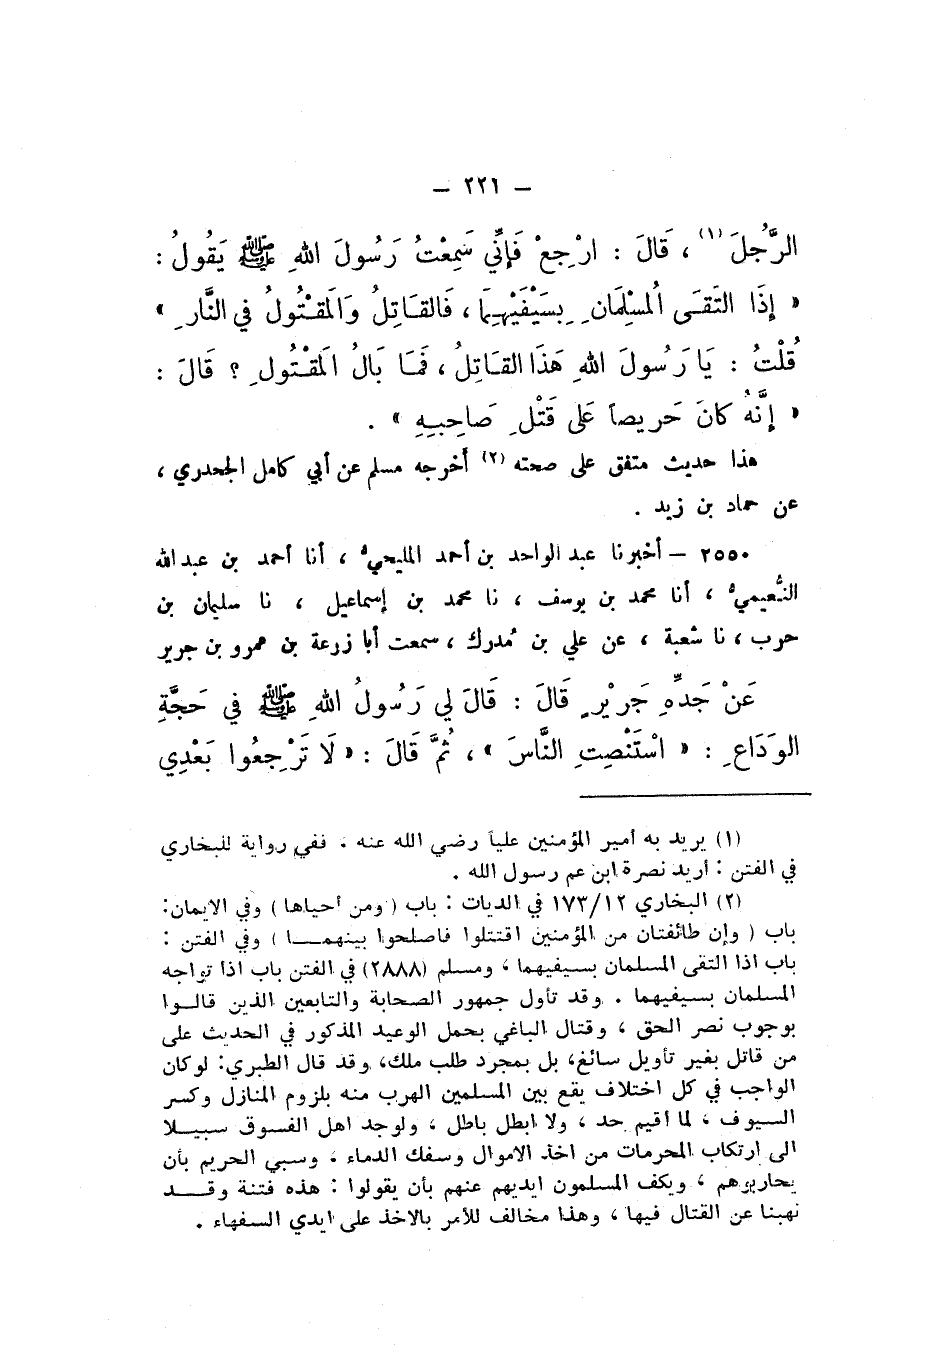 – ٢٢١ –
الرَّجُلَ (١) ، قَالَ : ارْجِعْ فَإِنِّي سَمِعْتُ رَسُولَ اللهِ ﷺ يَقُولُ :
« إِذَا التَقَى المُسْلِمَانِ بِسَيْفَيْهِمَا ، فَالقَاتِلُ وَالمَقْتُولُ في النَّارِ »
قُلْتُ : يَا رَسُولَ اللهِ هَذَا القَاتِلُ ، فَمَا بَالُ المَقْتُولِ ؟ قَالَ :
« إِنَّهُ كَانَ حَرِيصاً عَلى قَتْلِ صَاحِبِهِ » .
هذا حديث متفق على صحته (٢) أخرجه مسلم عن أبي كامل الجحدري ،
عن حماد بن زيد .
٢٥٥٠ – أخبرنا عبد الواحد بن أحمد المليحي ، أنا أحمد بن عبد الله
النُّعيمي ، أنا محمد بن يوسف ، نا محمد بن إسماعيل ، نا سليمان بن
حرب ، نا شعبة ، عن علي بن مُدرك ، سمعت أبا زرعة بن عمرو بن جرير
عَنْ جَدِّهِ جَرِيْرٍ قَالَ : قَالَ لي رَسُولُ اللهِ ﷺ في حَجَّةِ
الوَدَاعِ : « اسْتَنْصِتِ النَّاسَ » ، ثُمَّ قَالَ : « لَا تَرْجِعُوا بَعْدِي
(١) يريد به أمير المؤمنين علياً رضي الله عنه . ففي رواية للبخاري
في الفتن : أريد نصرة ابن عم رسول الله .
(٢) البخاري ١٧٣/١٢ في الديات : باب ( ومن أحياها ) وفي الايمان :
باب ( وإن طائفتان من المؤمنين اقتتلوا فاصلحوا بينهما ) وفي الفتن :
باب اذا التقى المسلمان بسيفيهما ، ومسلم (٢٨٨٨) في الفتن باب اذا تواجه
المسلمان بسيفيهما . وقد تأول جمهور الصحابة والتابعين الذين قالوا
بوجوب نصر الحق ، وقتال الباغي بحمل الوعيد المذكور في الحديث على
من قاتل بغير تأويل سائغ، بل بمجرد طلب ملك، وقد قال الطبري: لو كان
الواجب في كل اختلاف يقع بين المسلمين الهرب منه بلزوم المنازل وكسر
السيوف ، لما أقيم حد ، ولا ابطل باطل ، ولوجد اهل الفسوق سبيلا
الى ارتكاب المحرمات من اخذ الاموال وسفك الدماء . وسبي الحريم بأن
يحاربوهم ، ويكف المسلمون ايديهم عنهم بأن يقولوا : هذه فتنة وقد
نهينا عن القتال فيها ، وهذا مخالف للأمر بالاخذ على ايدي السفهاء .